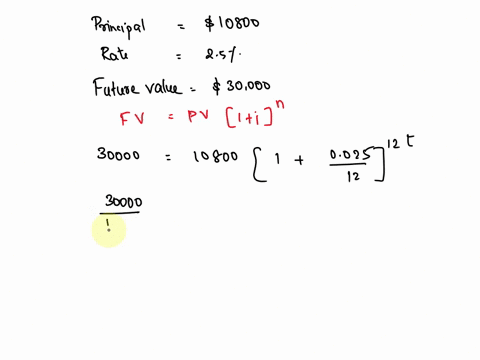 Principal = $10800
Rate = 2.5%
Future value = $30,000
FV = PV [1+i]^n
30000 = 10800 [1 + 0.025/12]^12t
30000